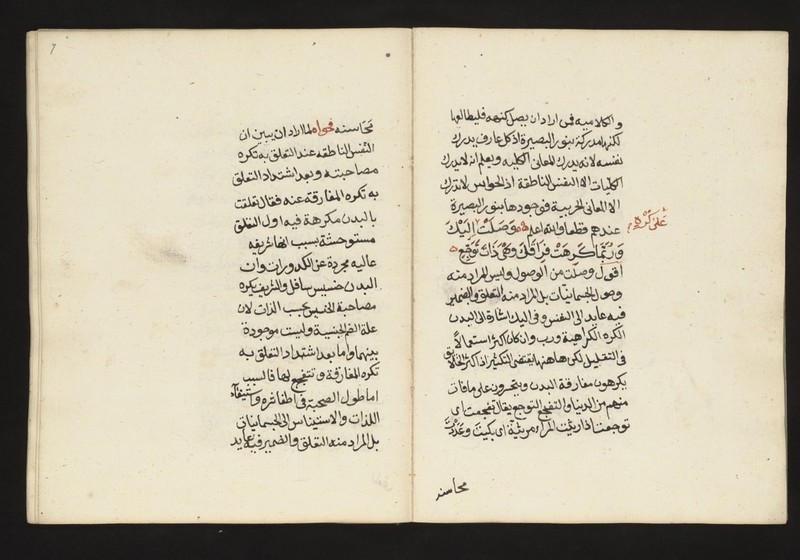 والكلامية فمن اراد ان يصل كنهه فليطالعها
لكنها مدركة بنور البصيرة اذ كل عارف يدرك
نفسه لانه يدرك المعاني الكلية ويعلم انه لا يدرك
الكليات الا النفس الناطقة اذ الحواس لا تدرك
الا المعاني الجزئية فوجودها بنور البصيرة
عندهم قطعا والله اعلم وَصَلَتْ اِلَيْكَ
عَلَى كُرْهٍ
وَرُبَّمَا كَرِهَتْ فِرَاقَكَ وَهْيَ ذَاتُ تَوَجُّعِ
اقول وصلت من الوصول وليس المراد منه
وصول الجسمانيات بل المراد منه التعلق والضمير
فيه عايد الى النفس وفي اليك اشارة الى البدن
الكره الكراهية ورب وان كان اكثر استعمالا
في التقليل لكن هاهنا يقتضي التكثير اذ اكثر الخلايق
يكرهون مفارقة البدن ويتحسرون على ما فات
منهم من الدنيا والتفجع التوجع يقال تفجعت اى
توجعت اذا رثيت المراة مرثية اى بكيت وعددت
محاسنه
7
مَحَاسنه فحواه لما اراد ان يبين ان
النفس الناطقة عند التعلق به تكره
مصاحبته وبعد اشتداد التعلق
به تكره المفارقة عنه فقال تعلقت
بالبدن مكرهة فيه اول التعلق
مستوحشة بسبب انها شريفه
عاليه مجردة عن الكدورات وان
البدن خسيس سافل والشريف يكره
مصاحبة الخسيس بحسب الذات لان
علة الضم الجنسية وليست موجودة
بينهما واما بعد اشتداد التعلق به
تكره المفارقة وتتفجع لها فالسبب
اما طول الصحبة في اظفاره واستيفاء
اللذات والاستيناس الى الجسمانيات
بل المراد منه التعلق والضمير فيه عايد